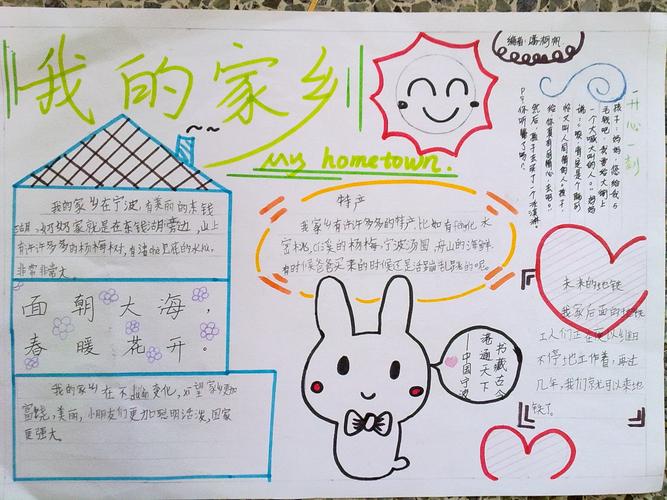 我的家乡
My hometown.
编者：潘柯帆
我的家乡在宁波，有美丽的东钱
湖，奶奶家就是在东钱湖旁边，山上
有许许多多的杨梅树，有清澈见底的水仙，
非常非常大。
面朝大海，
春暖花开。
我的家乡在不断变化，希望家乡更加
富饶，美丽，小朋友们更加聪明活泼，国家
更强大。
特产
我家乡有许许多多的特产，比如有奉化水
蜜桃，慈溪的杨梅，宁波汤圆，舟山的海鲜，
有时候爸爸买来的时候还是活蹦乱跳的呢。
书藏古今
港通天下
——中国宁波
开心一刻
孩子：妈妈，您给我5
毛钱吧，我要给大街上
一个大喊大叫的人。妈妈
说：
未来的地铁
我家后面的地铁
工人们正在
不停地工作着，再过
几年，我们就可以来坐
铁了。